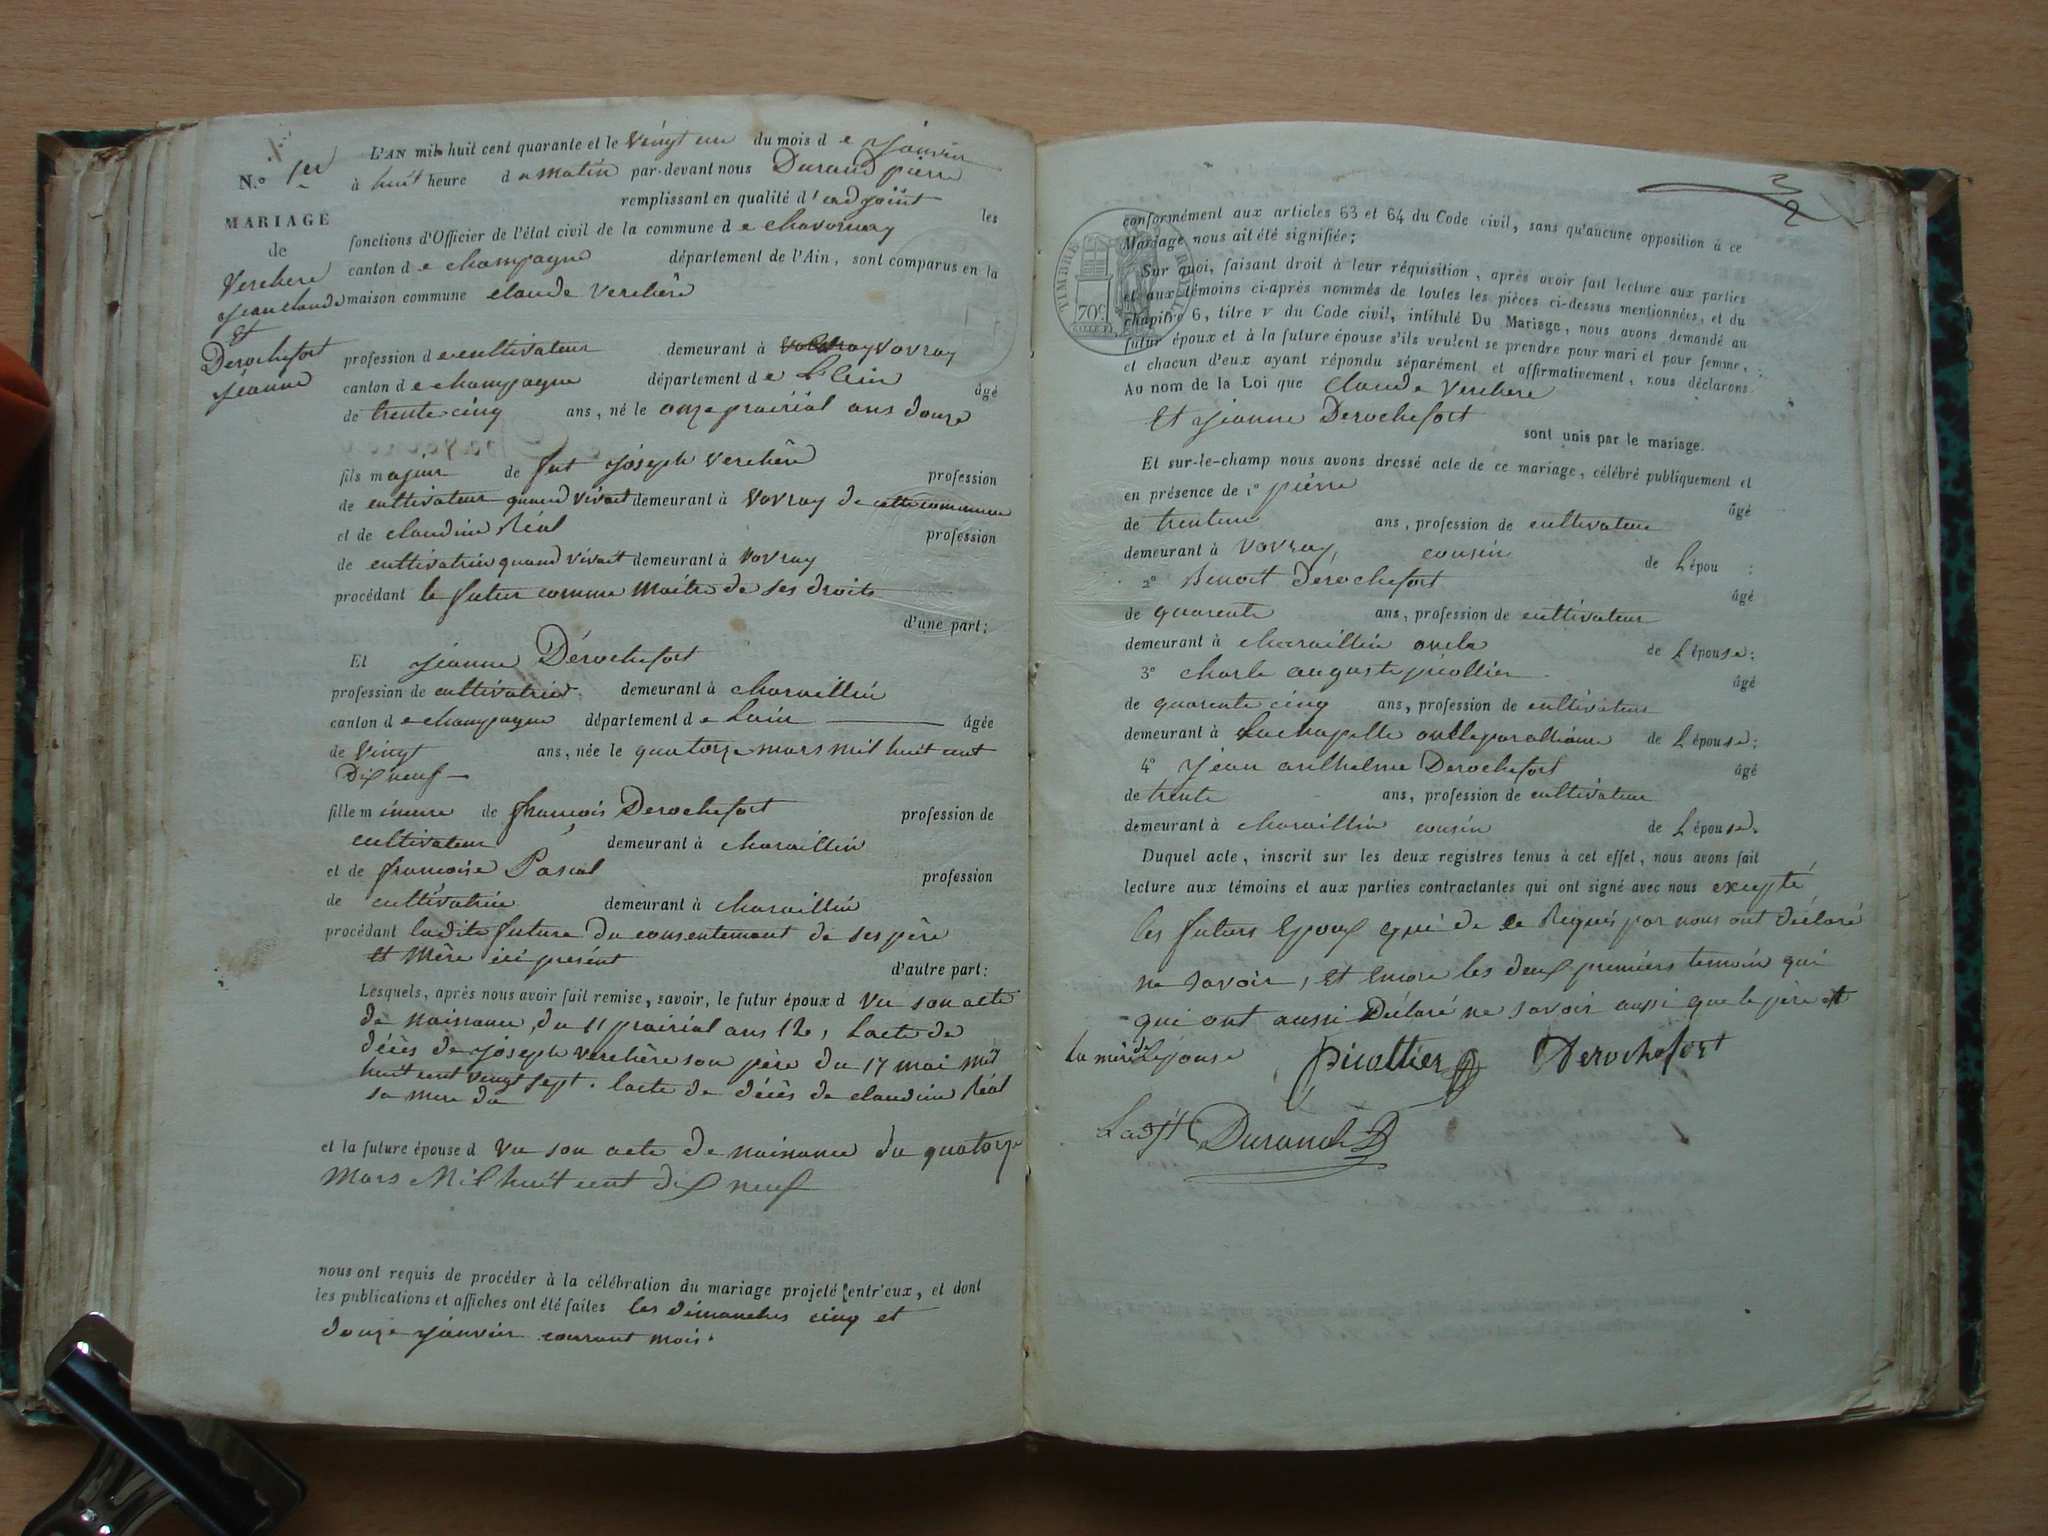 N.o 1er
MARIAGE
de
Verchere
jean claude
Et
Derochefort
jeanne
L'AN mil huit cent quarante et le vingt un du mois de janvier
à huit heure du matin par-devant nous Durand pierre
remplissant en qualité d'adjoint les
fonctions d'Officier de l'état civil de la commune de chavornay
canton de champagne département de l'Ain, sont comparus en la
maison commune claude verchère
profession de cultivateur demeurant à vovray
canton de champagne département de L'Ain âgé
de trente-cinq ans, né le onze prairial ans douze
fils majeur de fut joseph verchère profession
de cultivateur quand vivait demeurant à vovray de cette commune
et de claudine Réal profession
de cultivatrice quand vivait demeurant à vovray
procédant le futur comme maitre de ses droits
d'une part;
Et jeanne Dérochefort
profession de cultivatrice demeurant à charaillin
canton de champagne département de Lain âgée
de vingt ans, née le quatorze mars mil huit cent
Dix neuf
fille mineure de françois Derochefort profession de
cultivateur demeurant à charaillin
et de francoise Pascal profession
de cultivatrice demeurant à charaillin
procédant ladite future du consentement de ses père
et mère ici présent d'autre part;
Lesquels, après nous avoir fait remise, savoir, le futur époux d vu son acte
de naissance, du 11 prairial ans 12, Lacte de
décès de joseph verchère son père du 17 mai mil
huit cent vingt sept. lacte de décès de claudine Réal
sa mere du
et la future épouse d vu son acte de naissance du quatorze
mars Mil huit cent dix neuf
nous ont requis de procéder à la célébration du mariage projeté entr'eux, et dont
les publications et affiches ont été faites les dimanches cinq et
douze janvier courant mois.
3
2
TIMBRE ROYAL
70c
conformément aux articles 63 et 64 du Code civil, sans qu'aucune opposition à ce
Mariage nous ait été signifiée;
Sur quoi, faisant droit à leur réquisition, après avoir fait lecture aux parties
et aux témoins ci-après nommés de toutes les pièces ci-dessus mentionnées, et du
chapitre 6, titre v du Code civil, intitulé Du Mariage, nous avons demandé au
futur époux et à la future épouse s'ils veulent se prendre pour mari et pour femme,
et chacun d'eux ayant répondu séparément et affirmativement, nous déclarons
Au nom de la Loi que claude verchere
Et jeanne Derochefort
sont unis par le mariage.
Et sur-le-champ nous avons dressé acte de ce mariage, célébré publiquement et
en présence de 1o pierre
de trentun ans, profession de cultivateur âgé
demeurant à vovray, cousin de L'épou :
2o Benoit Dérochefort âgé
de quarente ans, profession de cultivateur
demeurant à charaillin oncle de L'épouse;
3o charle auguste picollier âgé
de quarente cinq ans, profession de cultivateur
demeurant à Lachapelle oncle par alliance de L'épouse;
4o jean anthelme Derochefort âgé
de trente ans, profession de cultivateur
demeurant à charaillin cousin de L'épouse.
Duquel acte, inscrit sur les deux registres tenus à cet effet, nous avons fait
lecture aux témoins et aux parties contractantes qui ont signé avec nous excepté
les futurs Epoux qui de ce Requis par nous ont déclaré
ne savoir, et encore les deux premiers temoin qui
qui ont aussi Déclaré ne savoir aussi que le père et
la mère de Lépouse picollier Derochefort
Ladjt Durand